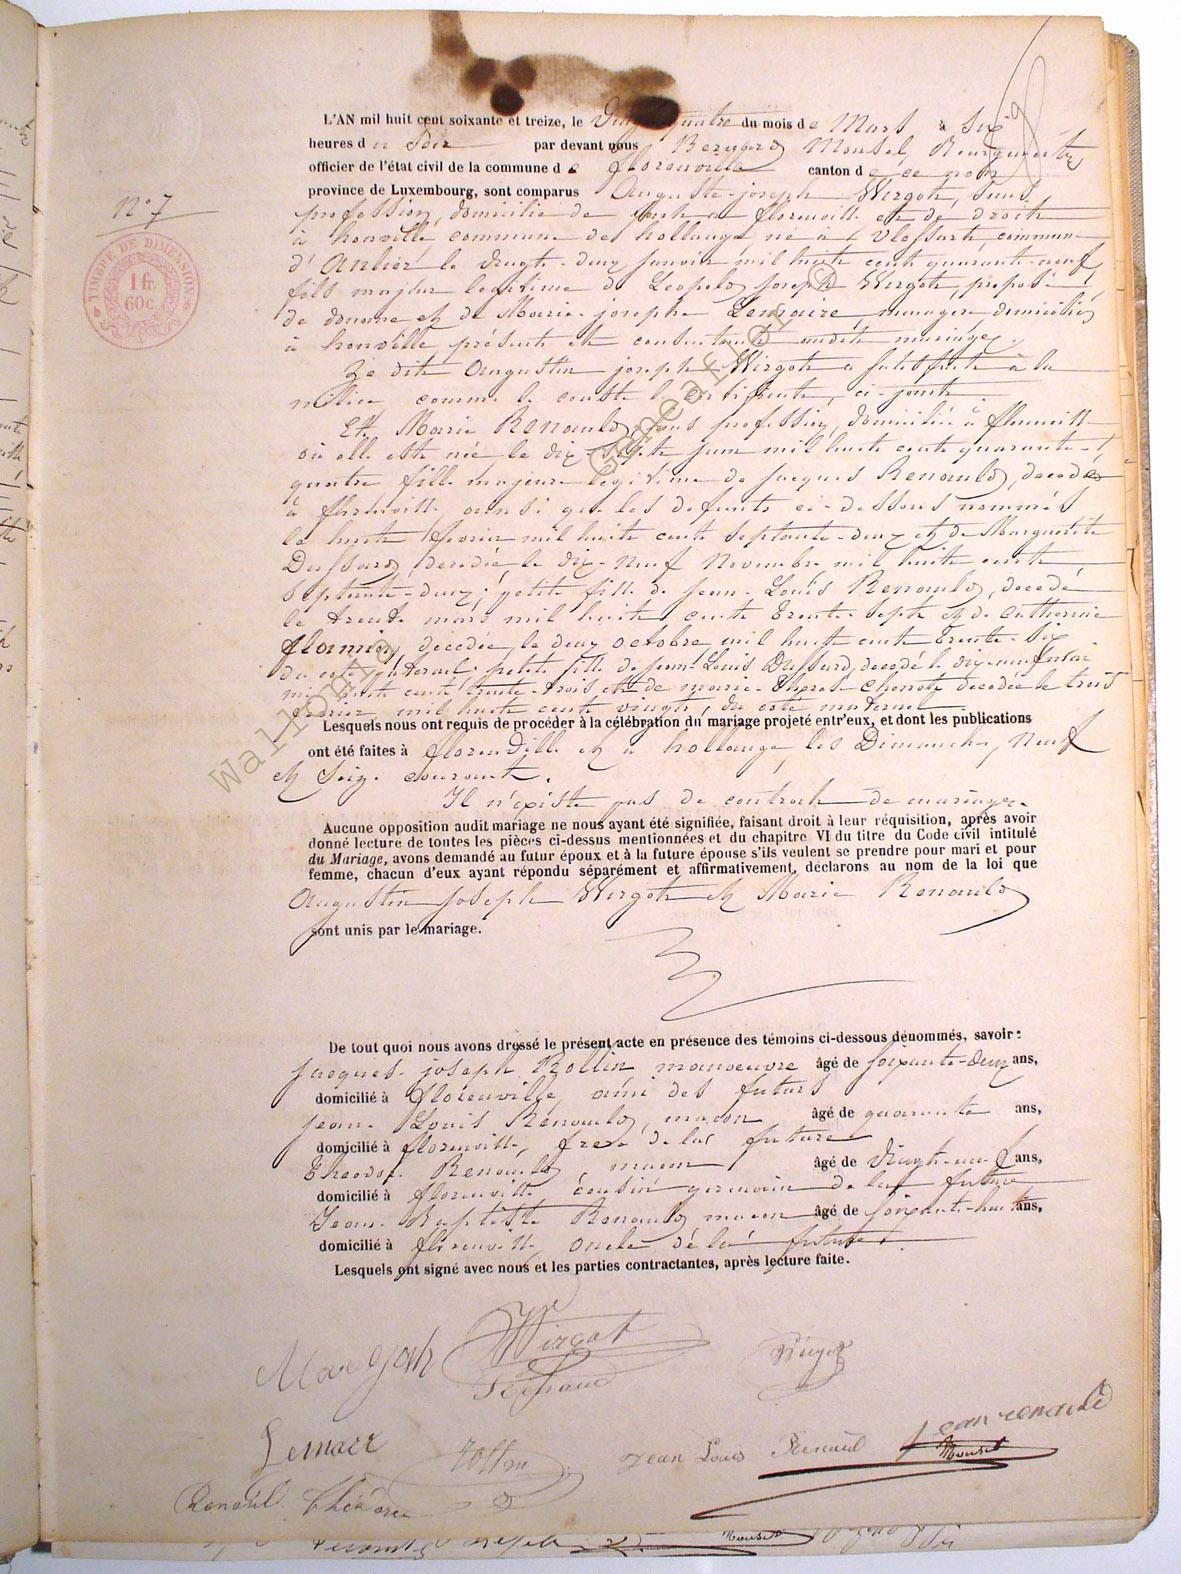 L'AN mil huit cent soixante et treize, le Vingt-quatre du mois de Mars à Six
heures du Soir par devant nous Bernard Mousel, Bourgmestre
officier de l'état civil de la commune de florenville canton de ce nom
province de Luxembourg, sont comparus Auguste-joseph Wirgot, sans
N° 7
profession, domicilié de fait à florenville et de droit
TIMBRE DE DIMENSION
1 fr.
60c.
à honville commune de hollange né à Vlessart, commune
d'Anlier le Vingt-deux janvier mil huit cent quarante-neuf
fils majeur légitime de Léopold joseph Wirgot, préposé
de douane et de Marie-josephe Lemaire, menagère domiciliés
à honville présents et consentants audit mariage.
Le dit Augustin joseph Wirgot a satisfait à la
milice comme le constte le certificat, ci-joint
Et Marie Renauld, sans profession, domiciliée à florenville
où elle est née le dix-sept juin mil huit cent quarante-
quatre fille majeure légitime de Jacques Renauld, decedé
à florenville, ainsi que les défunts ci-dessous nommés
le huit février mil huit cent septante-deux et de Marguerite
Dussard decedée, le dix-neuf Novembre mil huit cent
septante-deux; petite fille de jean-Louis Renauld, decedé
le trente mars mil huit cent trente-sept et de Catherine
flamion, decedée, le deux octobre mil huit cent trente-six
du coté paternel: petite fille de jean-Louis Dussard, decedé le dix-neuf mai
mil huit cent trente-trois et de marie-thérèse chenot decedée le trois
février mil huit cent vingt, du coté maternel
Lesquels nous ont requis de procéder à la célébration du mariage projeté entr'eux, et dont les publications
ont été faites à florenville et à hollange, les Dimanches, Neuf
et Seize courant.
Il n'existe pas de contrat de mariage.
Aucune opposition audit mariage ne nous ayant été signifiée, faisant droit à leur réquisition, après avoir
donné lecture de toutes les pièces ci-dessus mentionnées et du chapitre VI du titre du Code civil intitulé
du Mariage, avons demandé au futur époux et à la future épouse s'ils veulent se prendre pour mari et pour
femme, chacun d'eux ayant répondu séparément et affirmativement, déclarons au nom de la loi que
Augustin joseph Wirgot et Marie Renauld
sont unis par le mariage.
De tout quoi nous avons dressé le présent acte en présence des témoins ci-dessous dénommés, savoir:
Jacques-joseph Rollin manoeuvre âgé de soixante-deux ans,
domicilié à florenville, ami des futurs
jean-Louis Renauld, maçon âgé de quarante ans,
domicilié à florenville, frere de la future
théodore Renauld, maçon âgé de Vingt-neuf ans,
domicilié à florenville cousin germain de la future
Jean-Baptiste Renauld, maçon âgé de soixante-huit ans,
domicilié à florenville, oncle de la future.
Lesquels ont signé avec nous et les parties contractantes, après lecture faite.
Wirgot
Lemaer
Rollin
Jean Louis Renauld
jean renauld
Mousel
Renauld théodore
Mousel
wallonia Geneafior ©